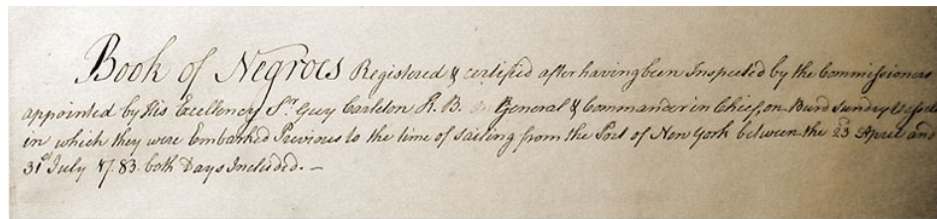 Book of Negroes Registered & certified after having been Inspected by the Commissioners
appointed by His Excellency Sr. Guy Carleton K. B. General & Commander in Chief, on Burd Sundry Vessels
in which they were Embarked Previous to the time of sailing from the Port of New York between the 23 April and
31st July 1783 both Days Included. —